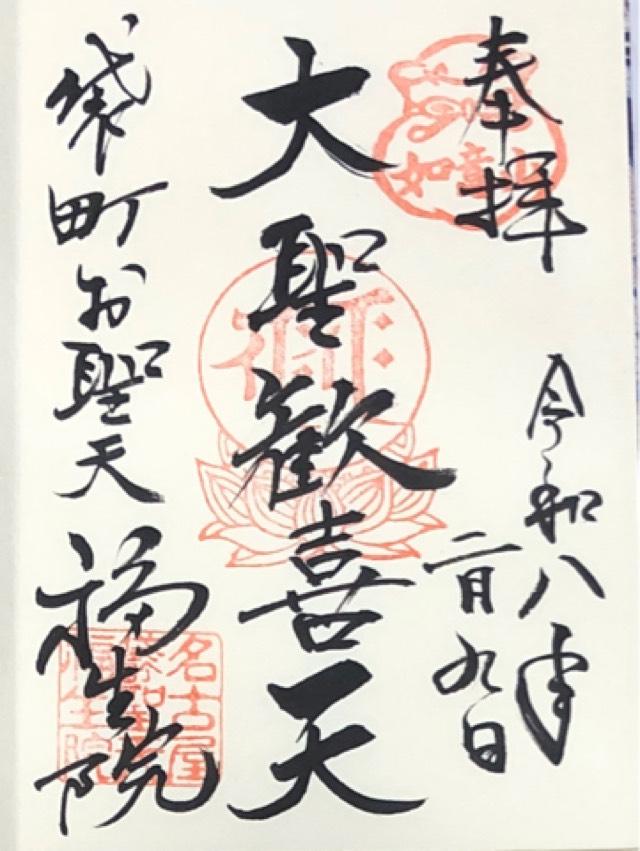 奉拝
令和八年
二月九日
大聖歓喜天
袋町お聖天
福生院
如意山
名古屋
福生院